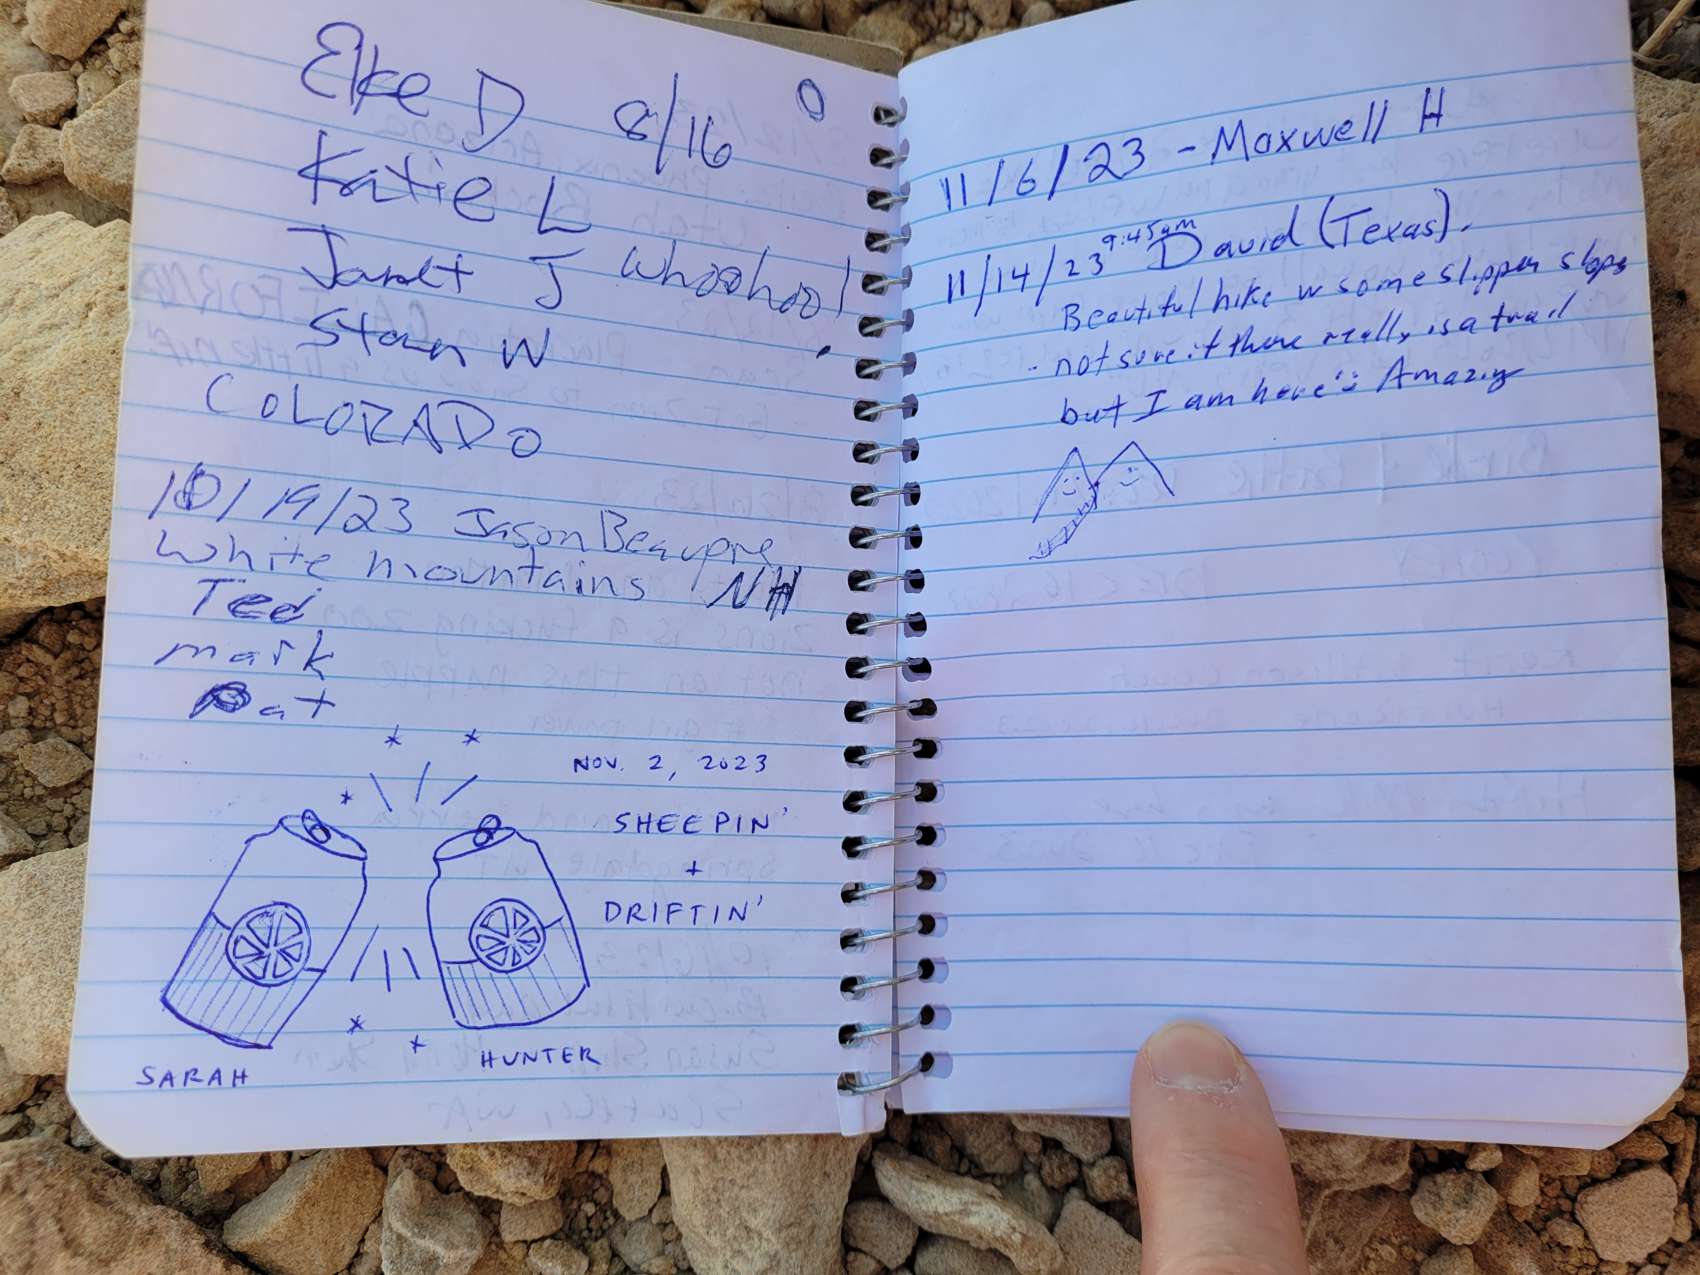 Elke D 8/16
Katie L
Janet J Whoohoo!
Stan W
COLORADO
10/19/23 Jason Beaupre
White mountains NH
Ted
mark
Pat
NOV. 2, 2023
SHEEPIN'
+
DRIFTIN'
SARAH
HUNTER
11/6/23 - Maxwell H
11/14/23 9:45am David (Texas).
Beautiful hike w some slipper slops
not sure if there really is a trail
but I am here is Amazing